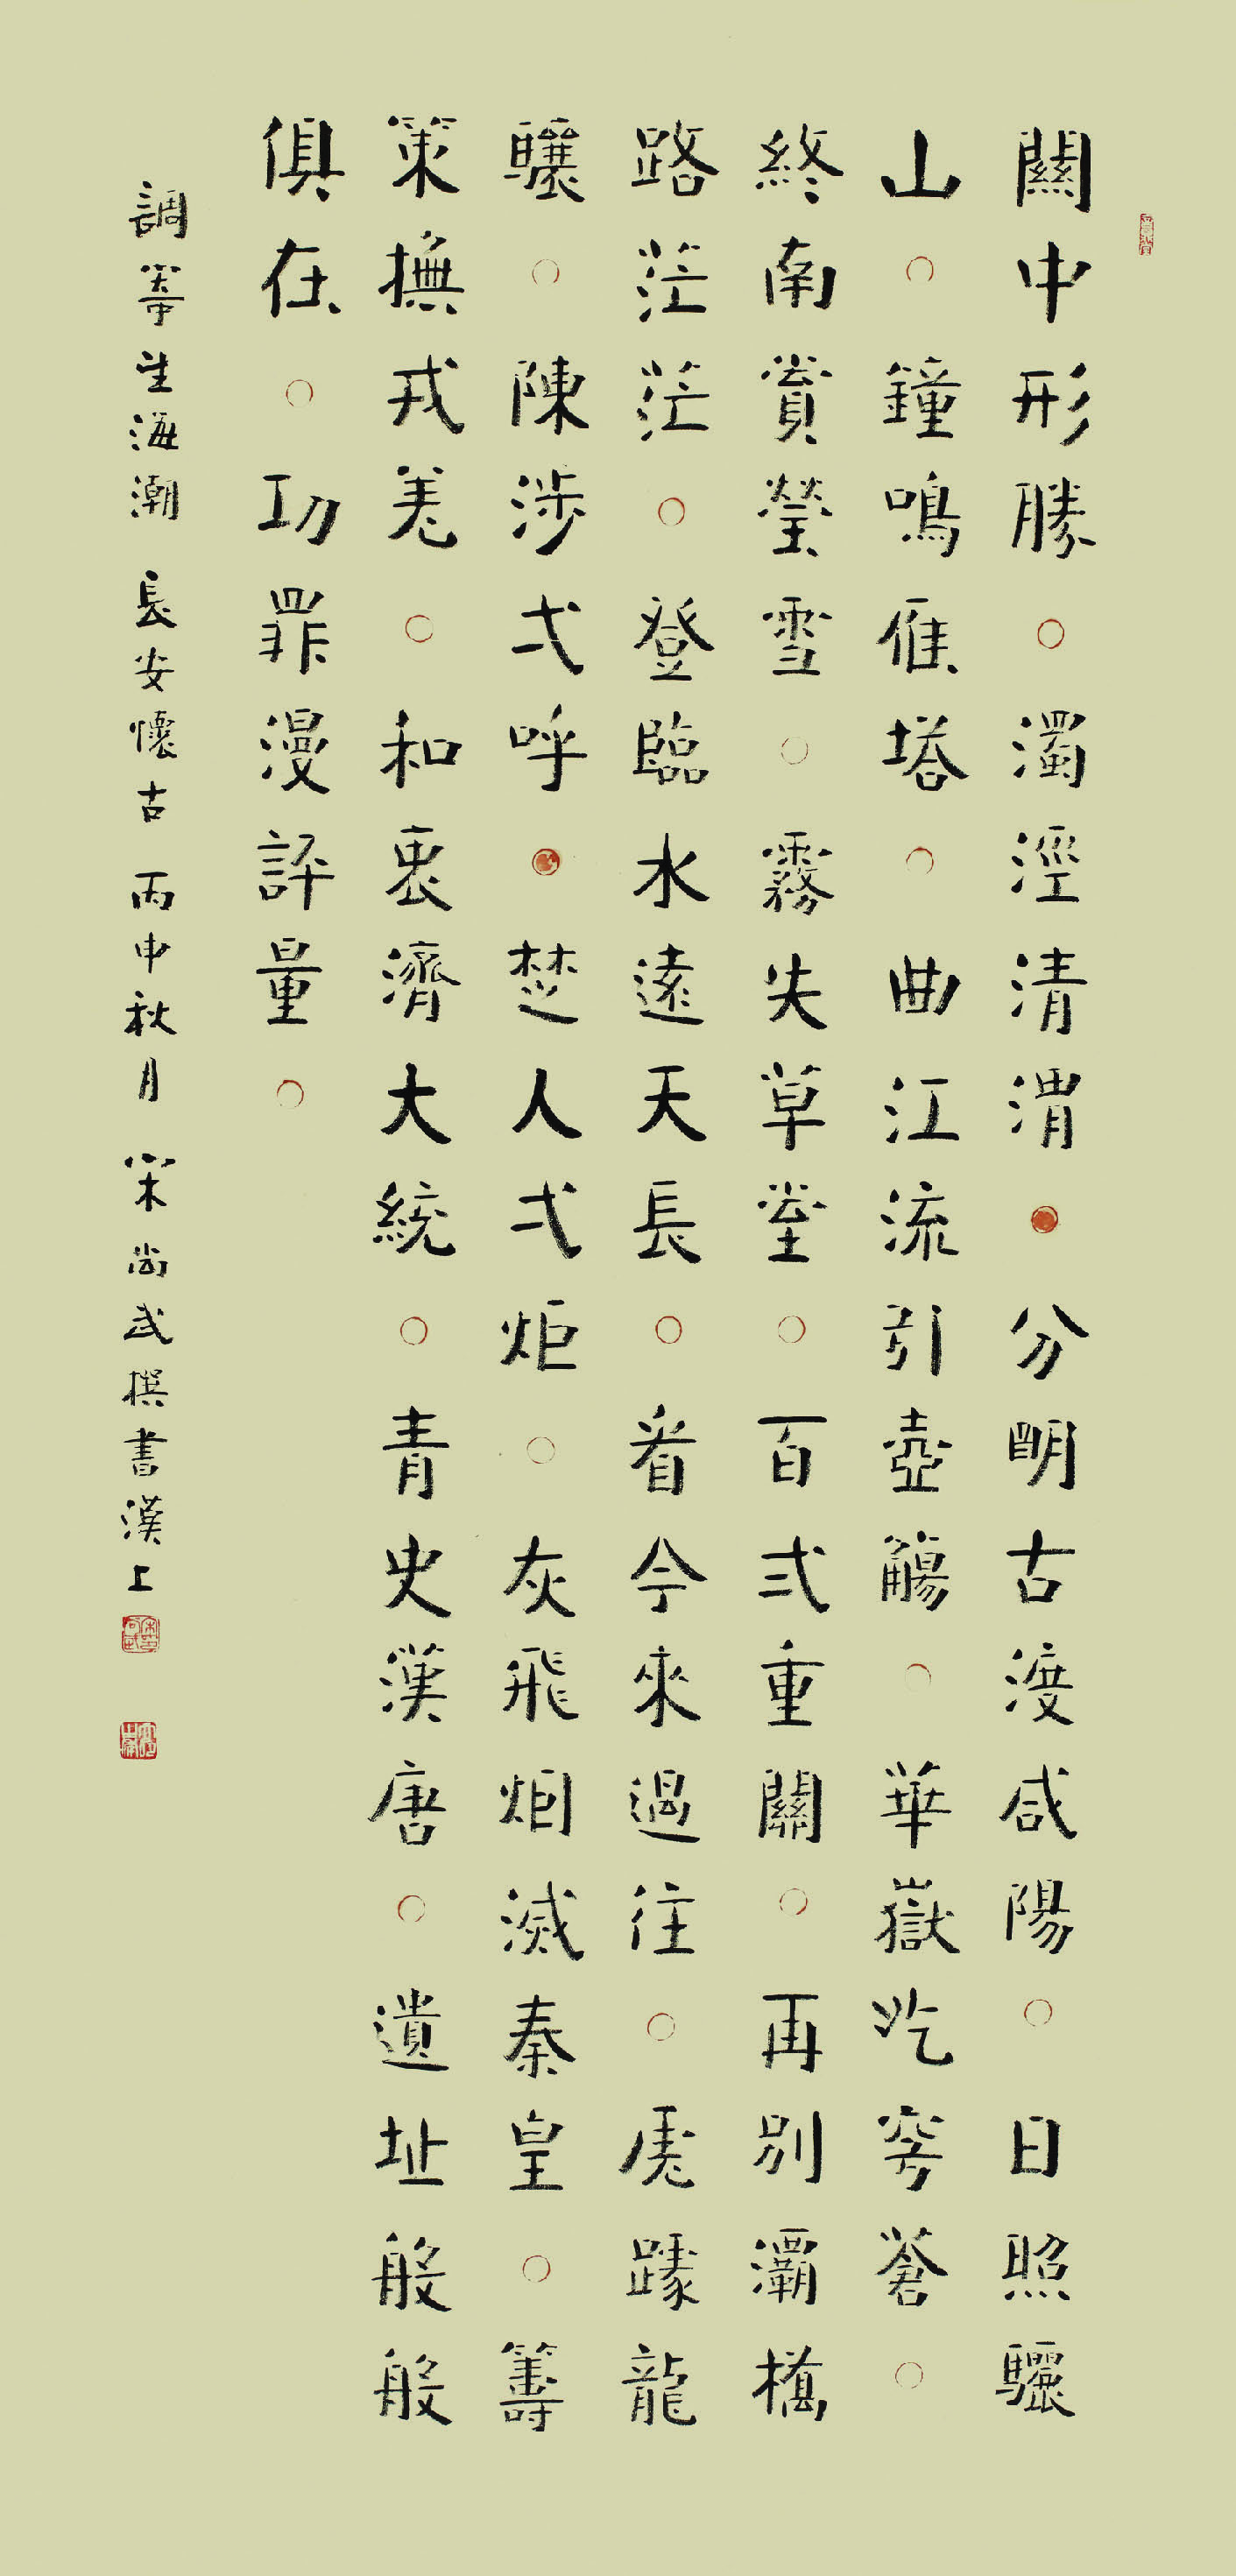 關中形勝○濁涇清渭●分明古渡咸陽○日照驪
山○鐘鳴雁塔○曲江流引壺觴○華嶽屹穹蒼○
終南賞瑩雪○霧失草堂○百弍重關○再別灞橋
路茫茫○登臨水遠天長○看今來過往○虎踞龍
驤○陳涉弌呼●楚人弌炬○灰飛烟滅秦皇○籌
策撫戎羌○和衷濟大統○青史漢唐○遺址般般
俱在○功罪漫評量○
調寄望海潮 長安懷古 丙申秋月 宋尚武撰書漢上